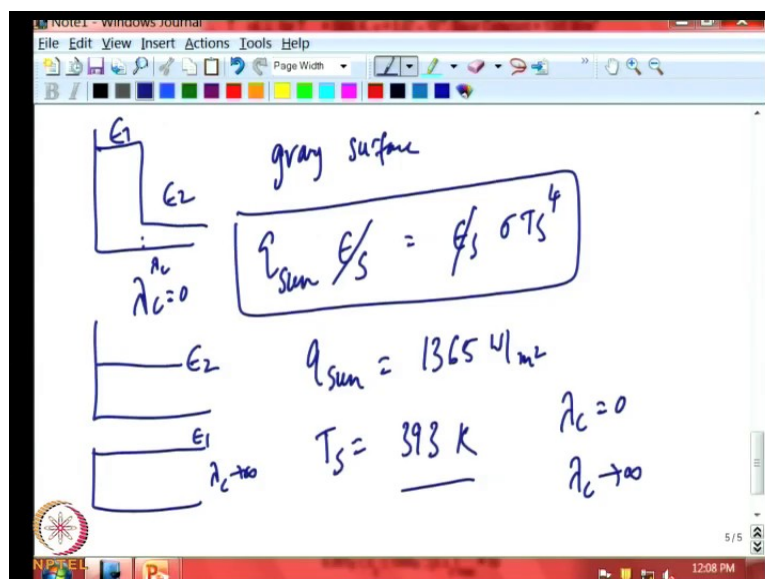 Note1 - Windows Journal
File Edit View Insert Actions Tools Help
Page Width
B I
ϵ1
gray surface
ϵ2
λc
λc=0
q sun ϵs = ϵs σTs^4
ϵ2
q sun = 1365 W/m²
ϵ1
λc→∞
Ts = 393 K
λc = 0
λc→∞
5/5
NPTEL
12:08 PM